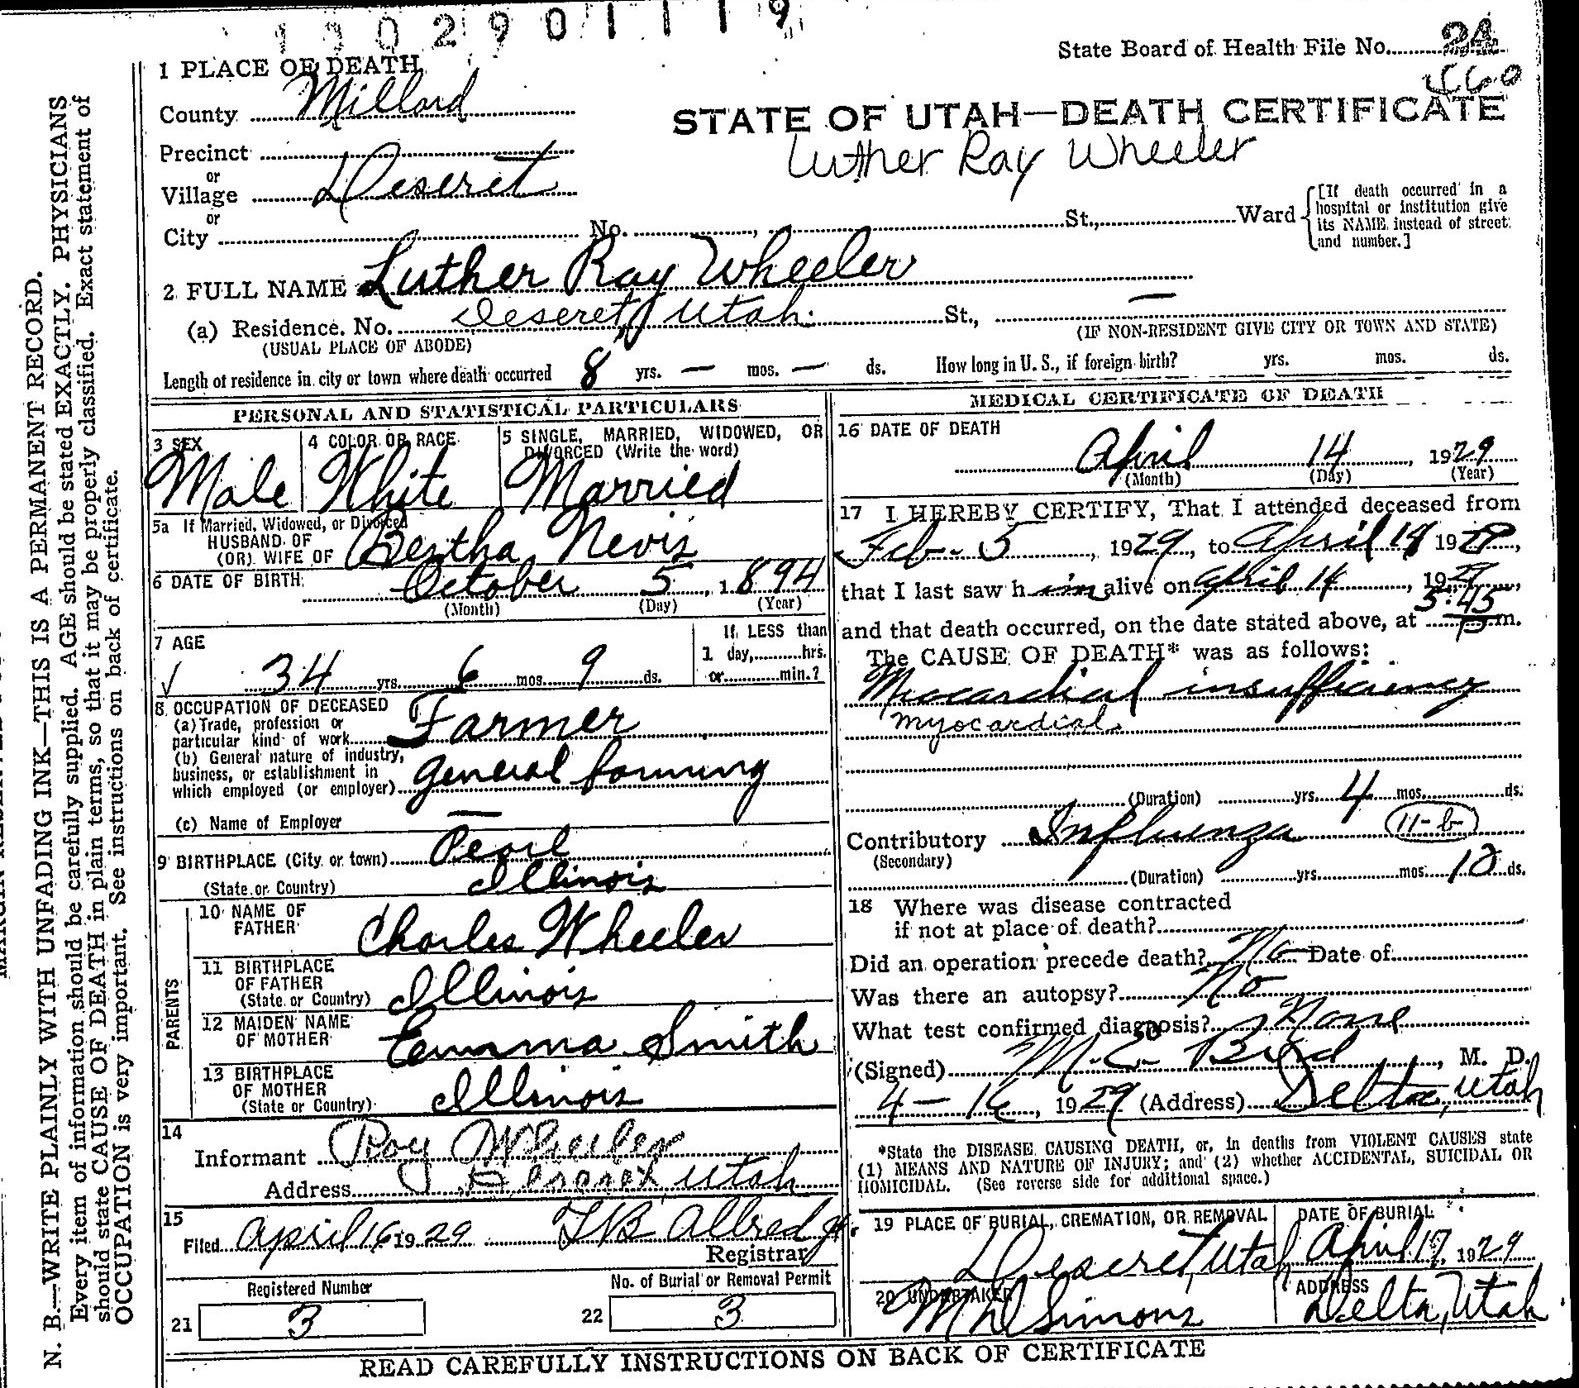 1 3 0 2 9 0 1 1 1 9
State Board of Health File No. 24
560
1 PLACE OF DEATH
County Millard
STATE OF UTAH—DEATH CERTIFICATE
Luther Ray Wheeler
Precinct
or
Village Deseret
or
City No. St., Ward
[If death occurred in a hospital or institution give its NAME instead of street and number.]
2 FULL NAME Luther Ray Wheeler
(a) Residence. No. Deseret, Utah. St., —
(USUAL PLACE OF ABODE) (IF NON-RESIDENT GIVE CITY OR TOWN AND STATE)
Length of residence in city or town where death occurred 8 yrs. — mos. — ds. How long in U. S., if foreign birth? yrs. mos. ds.
PERSONAL AND STATISTICAL PARTICULARS
3 SEX
Male
4 COLOR OR RACE
White
5 SINGLE, MARRIED, WIDOWED, OR DIVORCED (Write the word)
Married
5a If Married, Widowed, or Divorced
HUSBAND OF
(OR) WIFE OF Bertha Nevis
6 DATE OF BIRTH October 5, 1894
(Month) (Day) (Year)
7 AGE
34 yrs. 6 mos. 9 ds.
If LESS than
1 day, hrs.
or min.?
8 OCCUPATION OF DECEASED
(a) Trade, profession or
particular kind of work Farmer
(b) General nature of industry,
business, or establishment in
which employed (or employer) General farming
(c) Name of Employer —
9 BIRTHPLACE (City or town) Pearl
(State or Country) Illinois
PARENTS
10 NAME OF
FATHER Charles Wheeler
11 BIRTHPLACE
OF FATHER
(State or Country) Illinois
12 MAIDEN NAME
OF MOTHER Emma Smith
13 BIRTHPLACE
OF MOTHER
(State or Country) Illinois
14
Informant Roy Wheeler
Address Deseret, Utah
15
Filed April 16 1929 T B Allred Jr.
Registrar
Registered Number
21 3
No. of Burial or Removal Permit
22 3
MEDICAL CERTIFICATE OF DEATH
16 DATE OF DEATH
April 14, 1929
(Month) (Day) (Year)
17 I HEREBY CERTIFY, That I attended deceased from
Feb. 5, 1929, to April 14 1929,
that I last saw him alive on April 14, 1929,
and that death occurred, on the date stated above, at 3:45 m.
The CAUSE OF DEATH* was as follows:
Miocardial insufficiency
Myocardial
(Duration) yrs. 4 mos. ds.
Contributory Influenza (11-b)
(Secondary)
(Duration) yrs. mos. 10 ds.
18 Where was disease contracted
if not at place of death?
Did an operation precede death? No Date of
Was there an autopsy? No
What test confirmed diagnosis? None
(Signed) M. E. Bird, M. D.
4-16, 1929 (Address) Delta, Utah
*State the DISEASE CAUSING DEATH, or, in deaths from VIOLENT CAUSES state
(1) MEANS AND NATURE OF INJURY; and (2) whether ACCIDENTAL, SUICIDAL OR
HOMICIDAL. (See reverse side for additional space.)
19 PLACE OF BURIAL, CREMATION, OR REMOVAL
Deseret, Utah
DATE OF BURIAL
April 17, 1929
20 UNDERTAKER
Simons
ADDRESS
Delta, Utah
READ CAREFULLY INSTRUCTIONS ON BACK OF CERTIFICATE
N. B.—WRITE PLAINLY WITH UNFADING INK—THIS IS A PERMANENT RECORD.
Every item of information should be carefully supplied. AGE should be stated EXACTLY. PHYSICIANS
should state CAUSE OF DEATH in plain terms, so that it may be properly classified. Exact statement of
OCCUPATION is very important. See instructions on back of certificate.